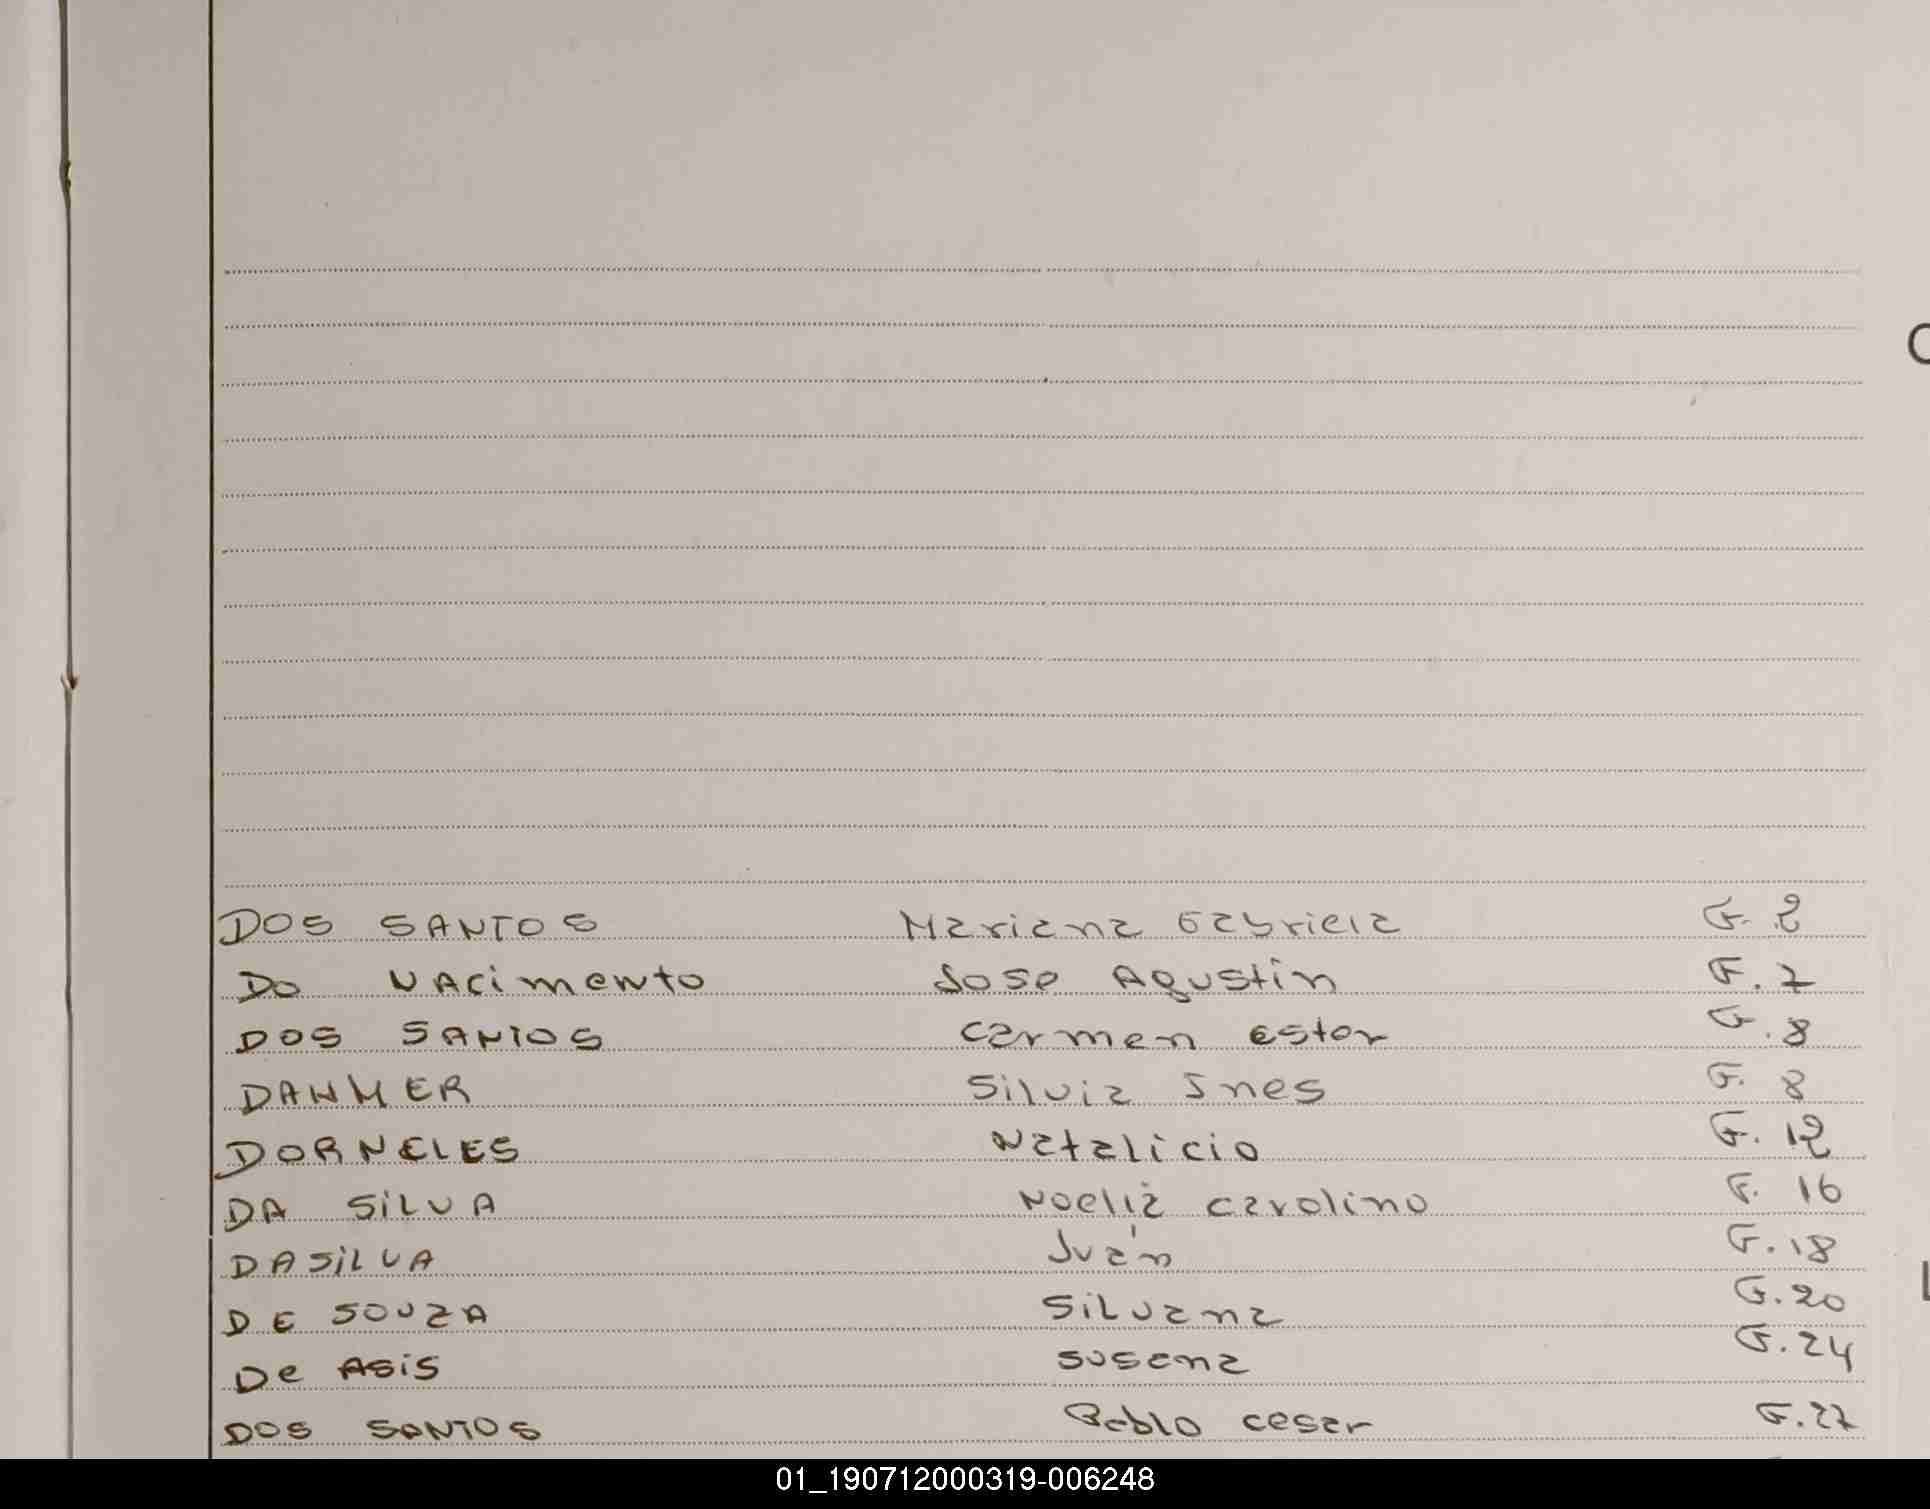 DOS SANTOS Mariana Gabriela F. 2
Do NACimento Jose Agustin F. 7
DOS SANTOS Carmen Ester F. 8
DANMER Silvia Ines F. 8
DORNELES Natalicio F. 12
DA SiLVA Noelia Carolino F. 16
DASiLVA Juán F. 18
DE SOUZA SiLvana F. 20
De ASiS Susana F. 24
DOS SANTOS Pablo Cesar F. 27
01_190712000319-006248